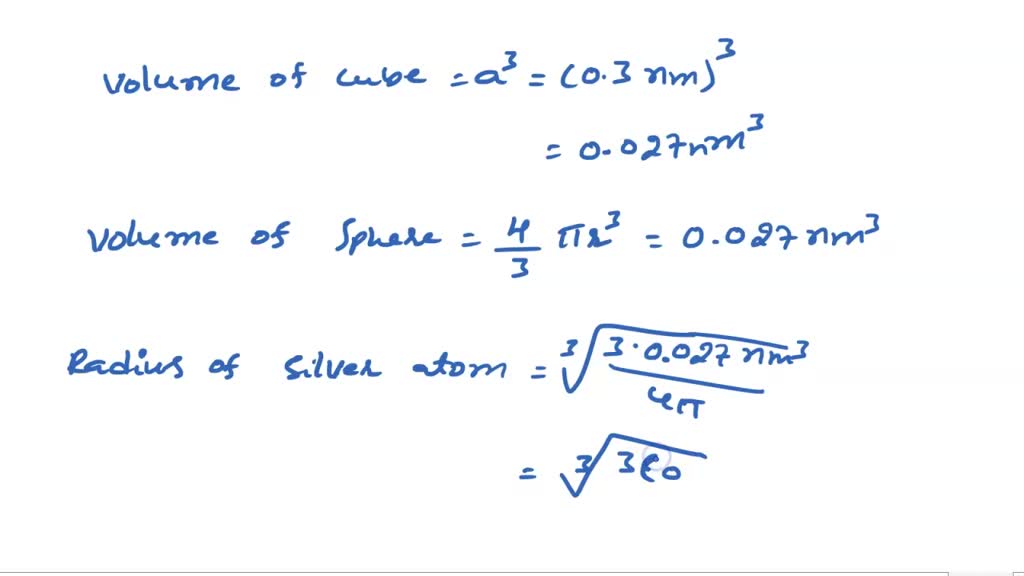 Volume of cube = a³ = (0.3 nm)³
= 0.027 nm³
Volume of Sphere = 4/3 πr³ = 0.027 nm³
Radius of Silver atom = ∛(3·0.027 nm³/4π)
= ∛3(0